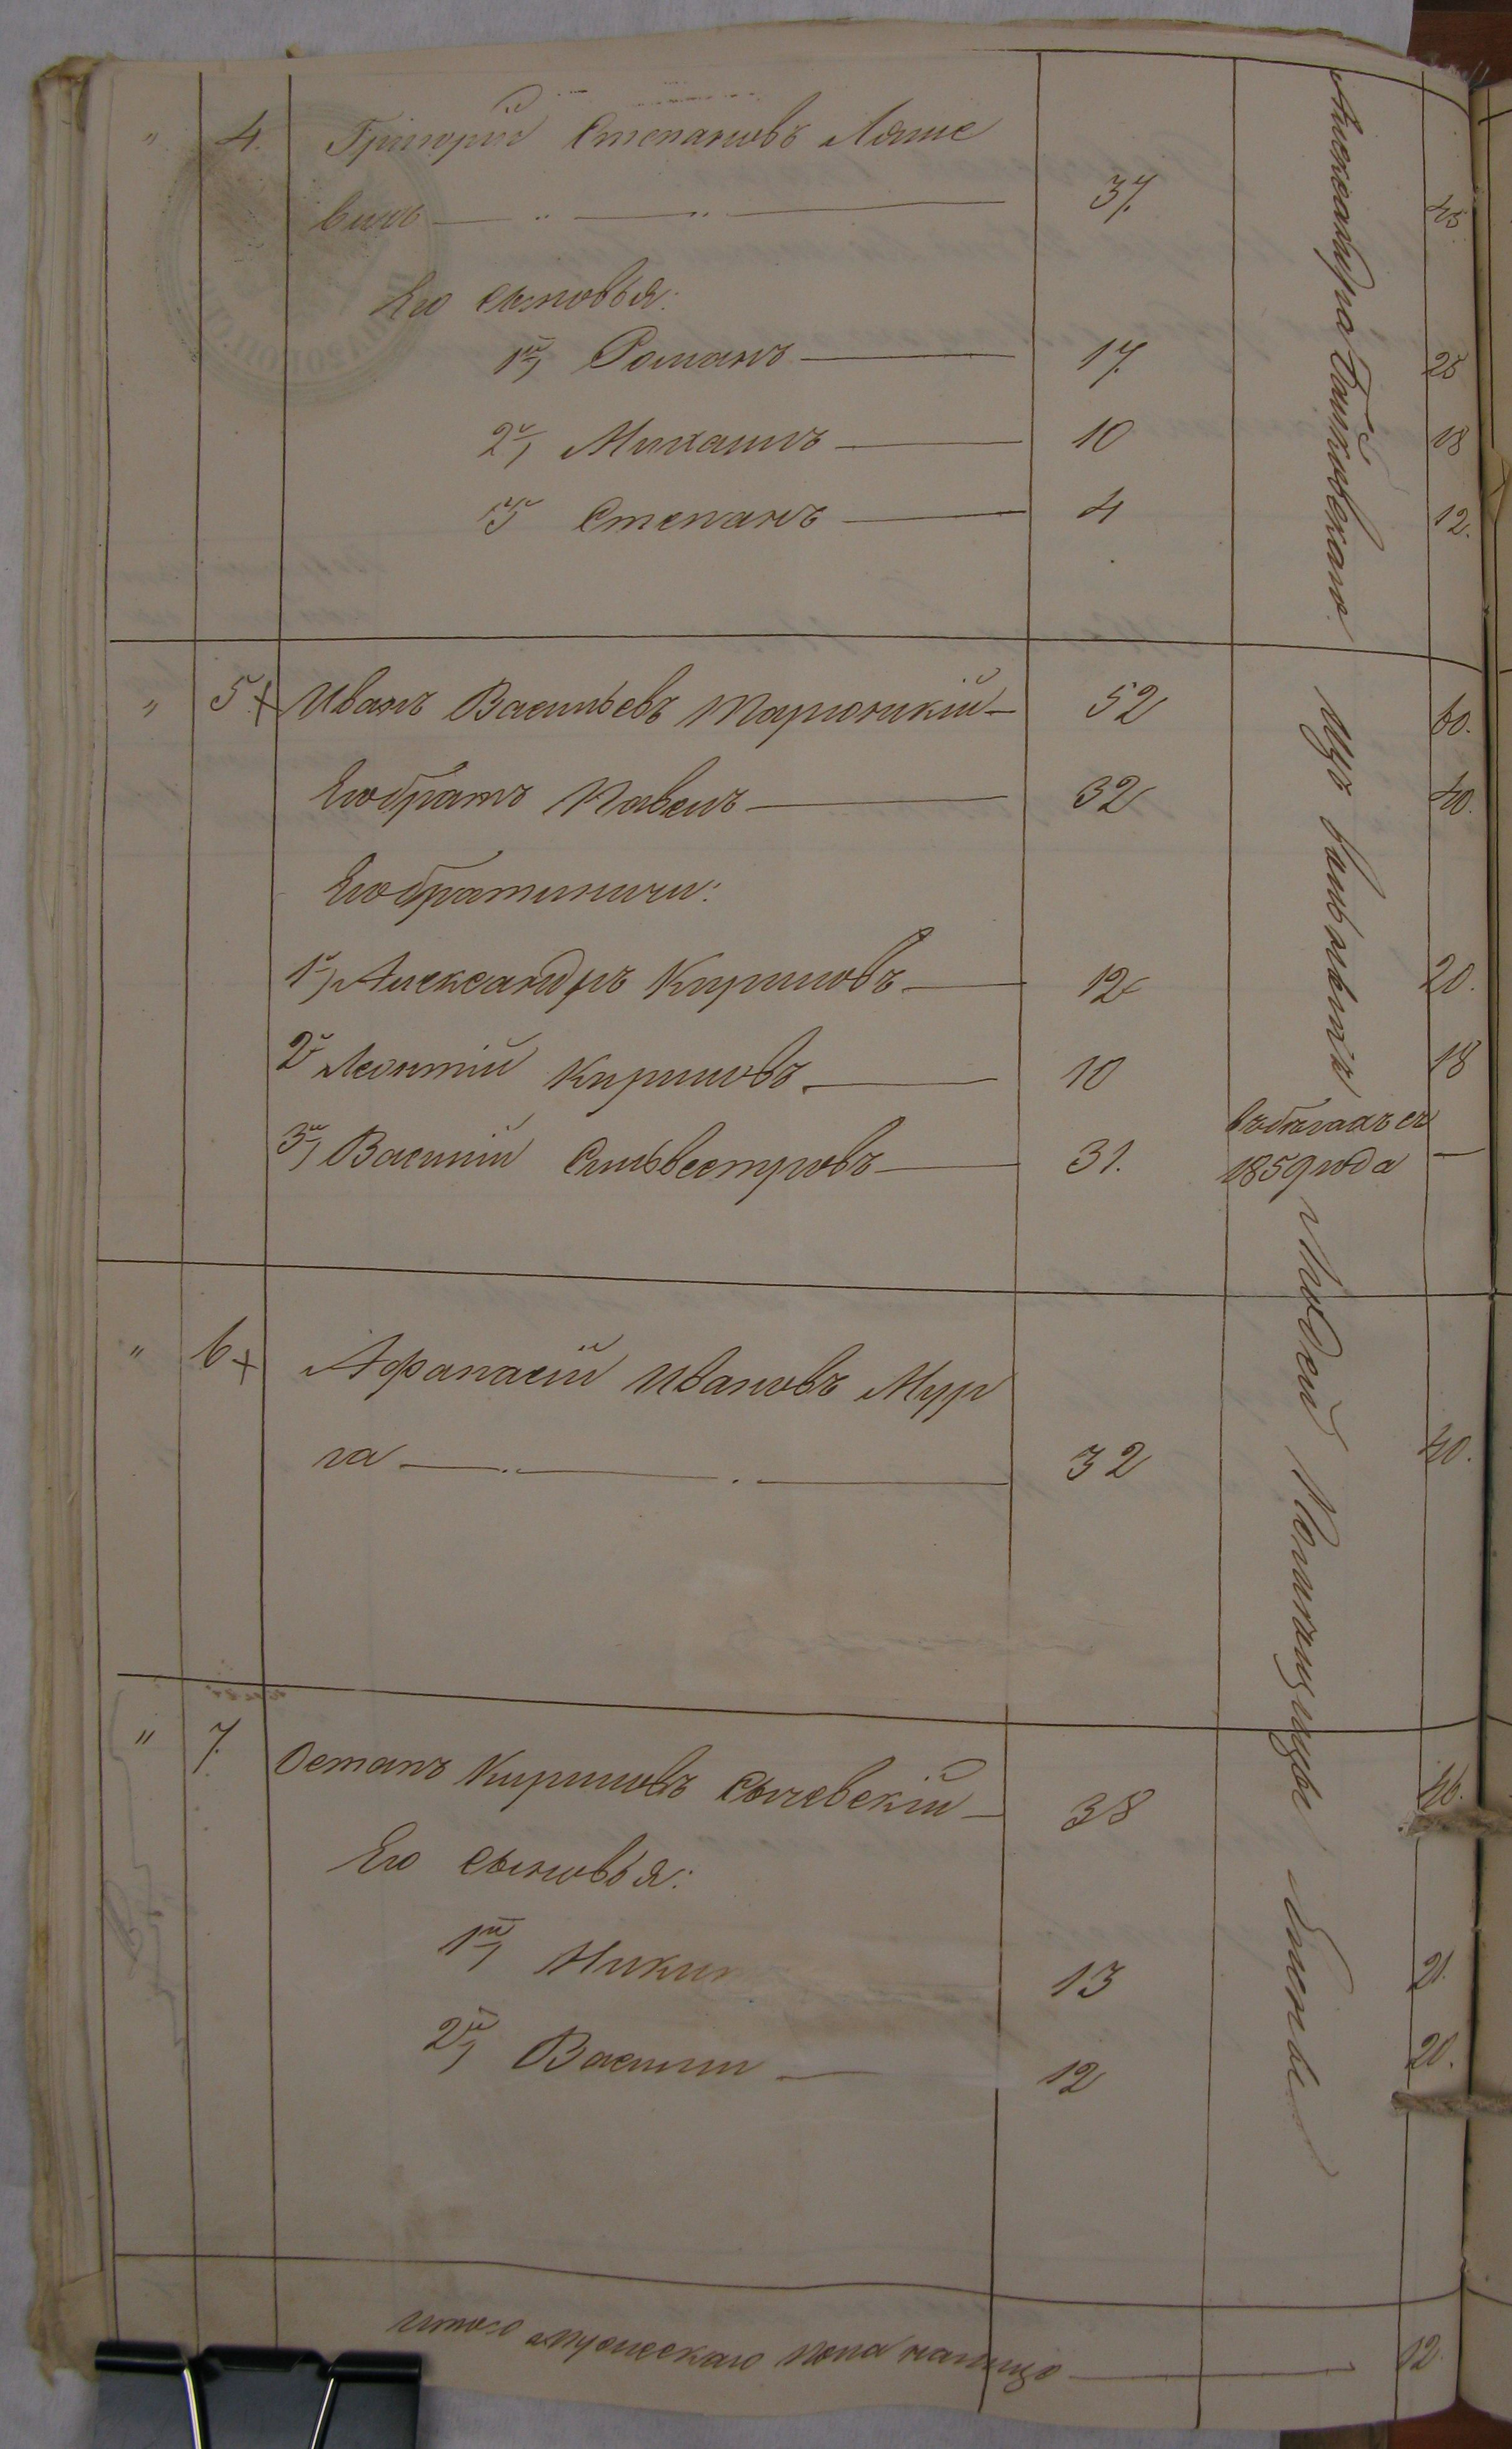 " 4. Григорій Степановъ Ляше
вичъ 37. 45
Его сыновья:
1й Романъ 17. 25
2й Михаилъ 10 18
3й Степанъ 4 12.
" 5 + Иванъ Васильевъ Тарюнкій 52 60.
Его братъ Павелъ 32 40.
Его братиничи:
1й Александръ Кириловъ 12 20.
2й Леонтій Кириловъ 10 18
3й Василій Сильвестровъ 31. въ бегахъ съ —
1859 года
" 6 + Афанасій Ивановъ Мур
га 32 40.
" 7. Остапъ Кириловъ Сычевскій 38 46.
Его сыновья:
1й Никит 13 21.
2й Василій 12 20.
Итого мужескаго пола налицо 12
Александра
изъ
людей Помещицы Елены